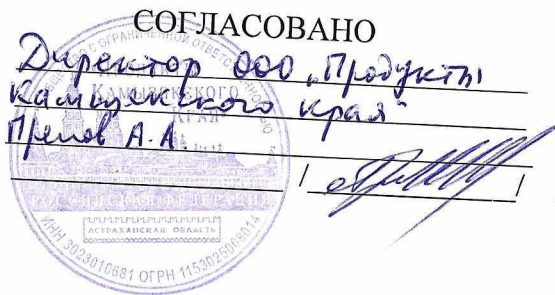 СОГЛАСОВАНО
Директор ООО „Продукты
Камызякского края"
А.А.
/ /
С ОГРАНИЧЕННОЙ ОТВЕТСТВЕННОСТЬЮ
КАМЫЗЯКСКОГО
КРАЯ
РОССИЙСКАЯ ФЕДЕРАЦИЯ
АСТРАХАНСКАЯ ОБЛАСТЬ
ИНН 3023010681 ОГРН 1153025008014